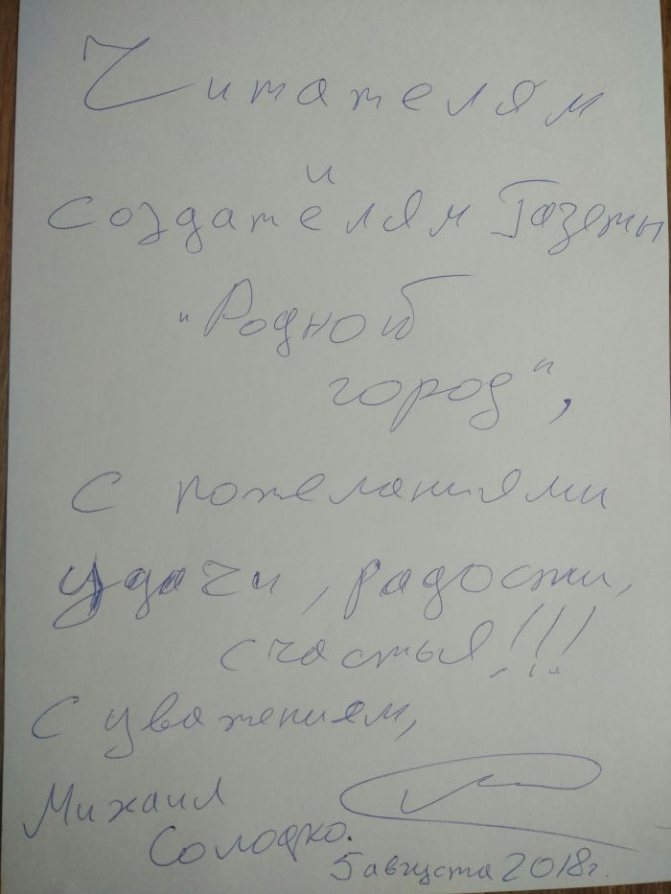 Читателям
и
создателям Газеты
"Родной
город",
с пожеланиями
удачи, радости,
счастья!!!
С уважением,
Михаил
Солодко.
5 августа 2018г.